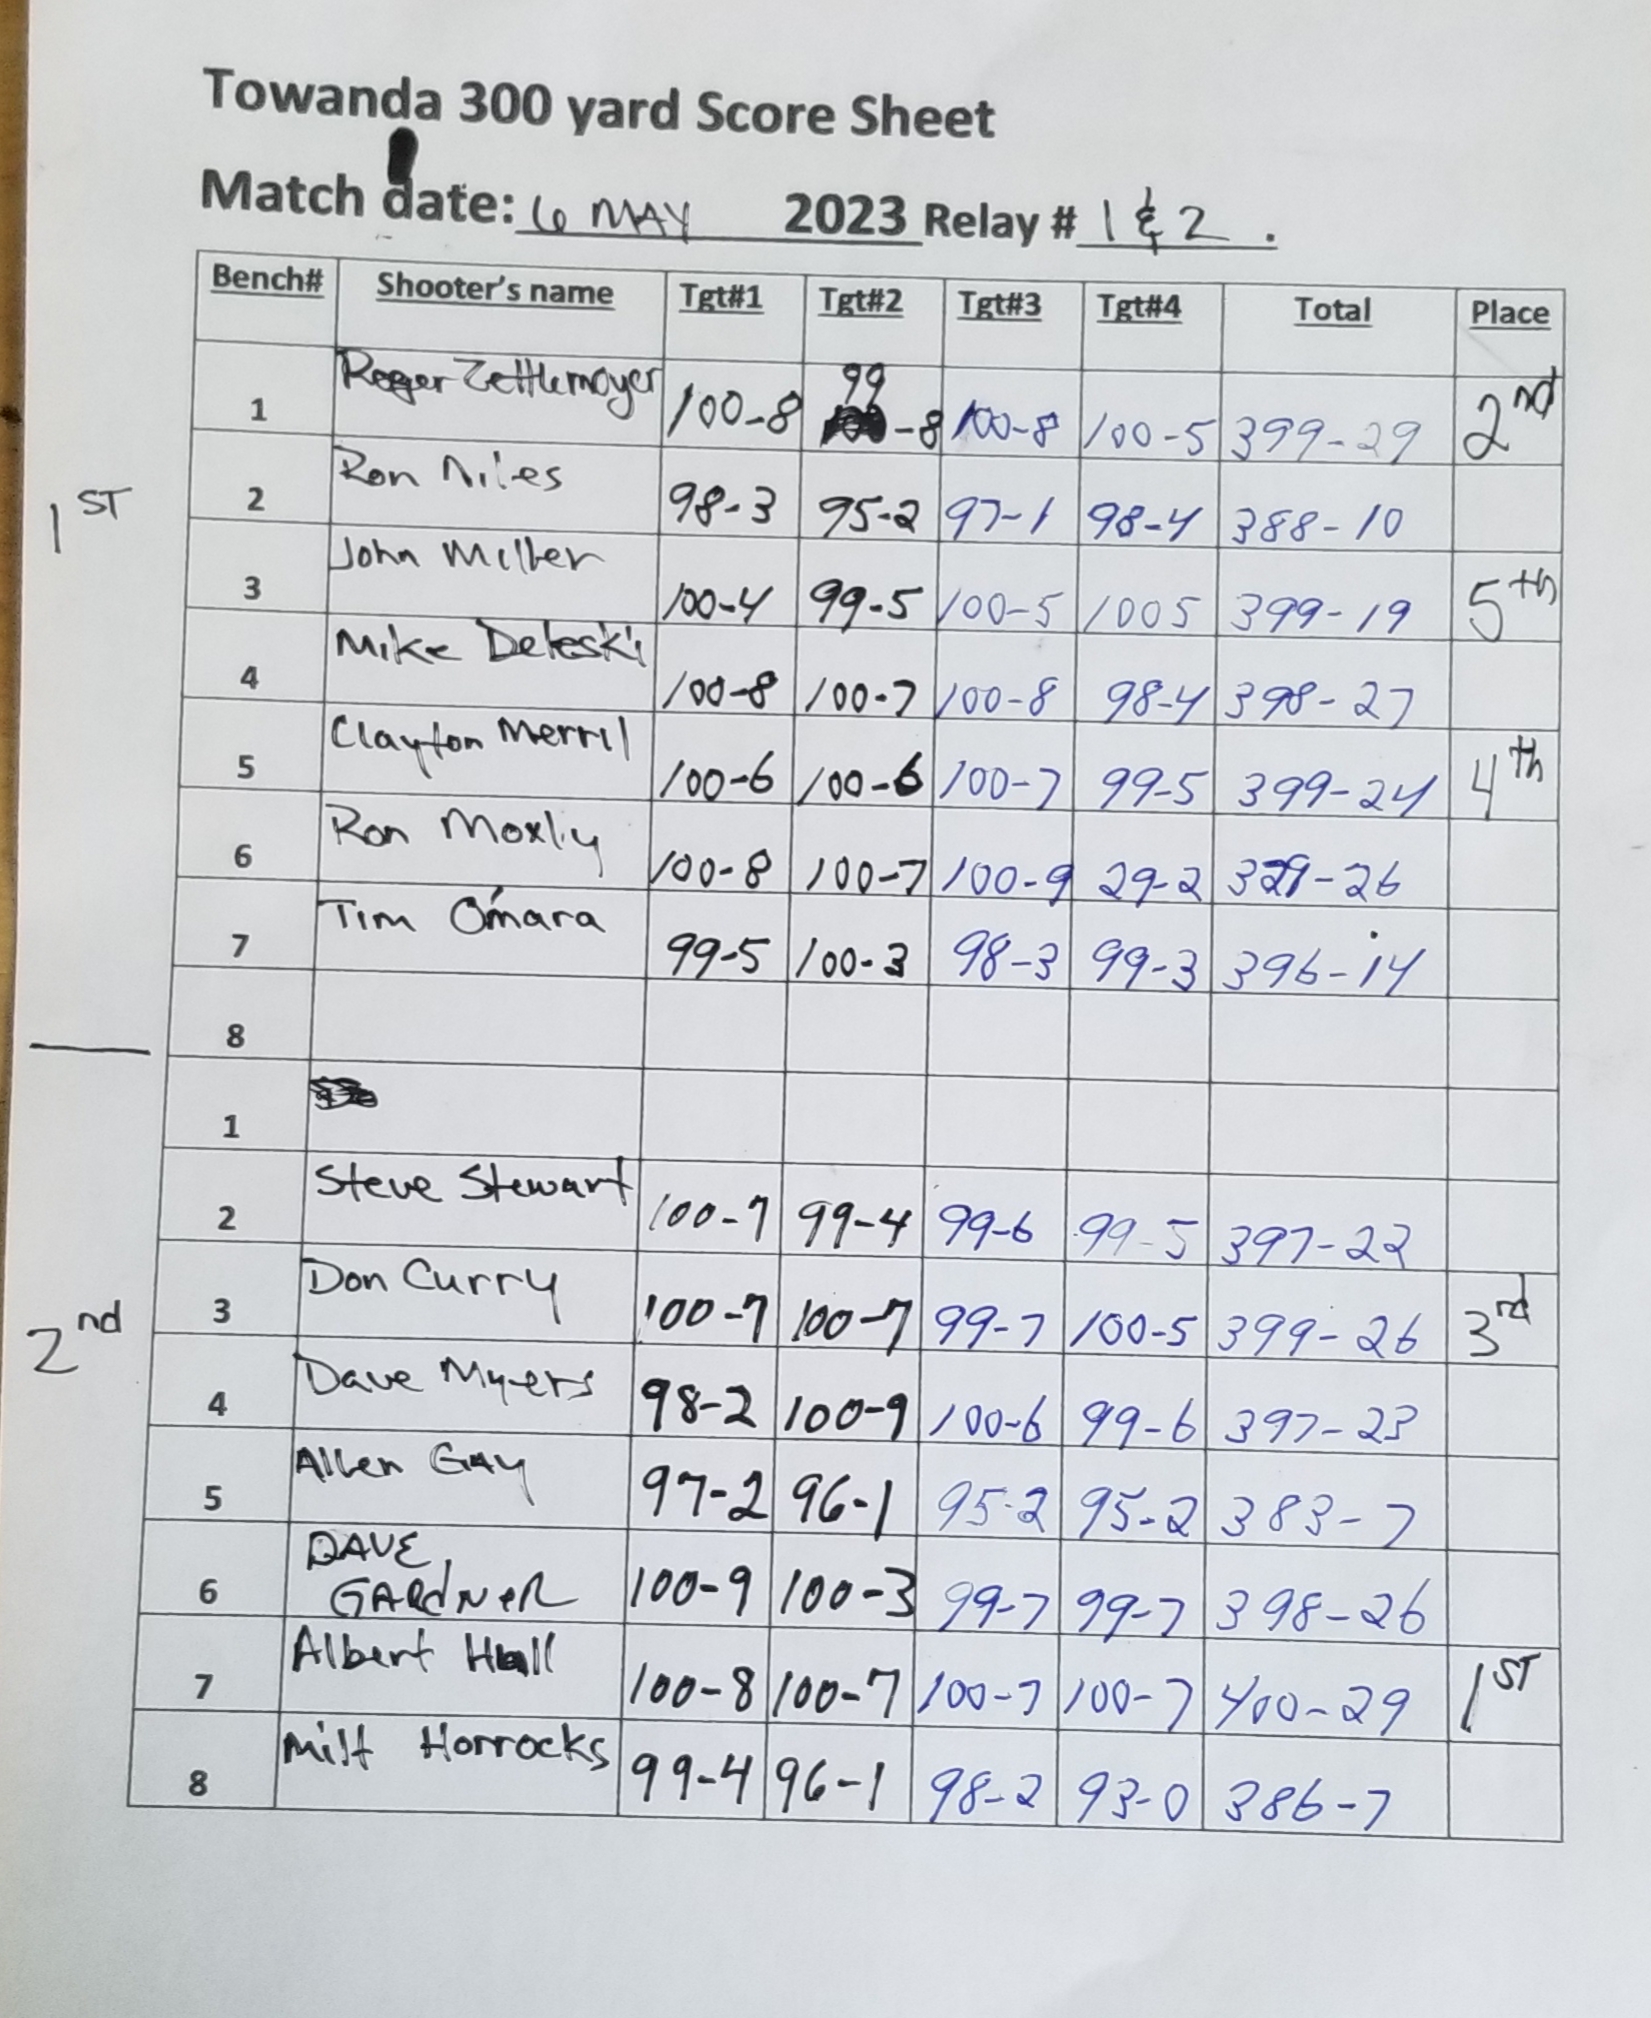 Towanda 300 yard Score Sheet
Match date: 6 MAY 2023 Relay # 1 & 2 .
Bench# Shooter's name Tgt#1 Tgt#2 Tgt#3 Tgt#4 Total Place
1 Roger Zettlemoyer 100-8 99-8 100-8 100-5 399-29 2nd
1ST
2 Ron Niles 98-3 95-2 97-1 98-4 388-10
3 John Miller 100-4 99-5 100-5 1005 399-19 5th
4 Mike Deleski 100-8 100-7 100-8 98-4 398-27
5 Clayton Merril 100-6 100-6 100-7 99-5 399-24 4th
6 Ron Moxliy 100-8 100-7 100-9 29-2 329-26
7 Tim O'mara 99-5 100-3 98-3 99-3 396-14
8
1
2 Steve Stewart 100-7 99-4 99-6 99-5 397-22
2nd
3 Don Curry 100-7 100-7 99-7 100-5 399-26 3rd
4 Dave Myers 98-2 100-9 100-6 99-6 397-23
5 Allen GAy 97-2 96-1 95-2 95-2 383-7
6 DAVE GARdNeR 100-9 100-3 99-7 99-7 398-26
7 Albert Hall 100-8 100-7 100-7 100-7 400-29 1ST
8 Milt Horrocks 99-4 96-1 98-2 93-0 386-7